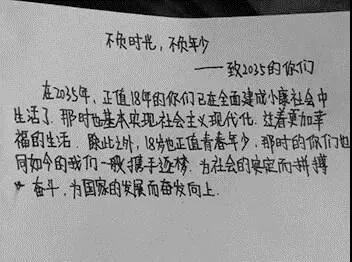 不负时光,不负年少
——致2035的你们
在2035年,正值18年的你们已在全面建成小康社会中
生活了,那时也基本实现社会主义现代化,过着更加幸
福的生活.除此之外,18岁也正值青春年少,那时的你们也
同如今的我们一般携手逐梦.为社会的安定而拼搏
奋斗,为国家的发展而奋发向上.